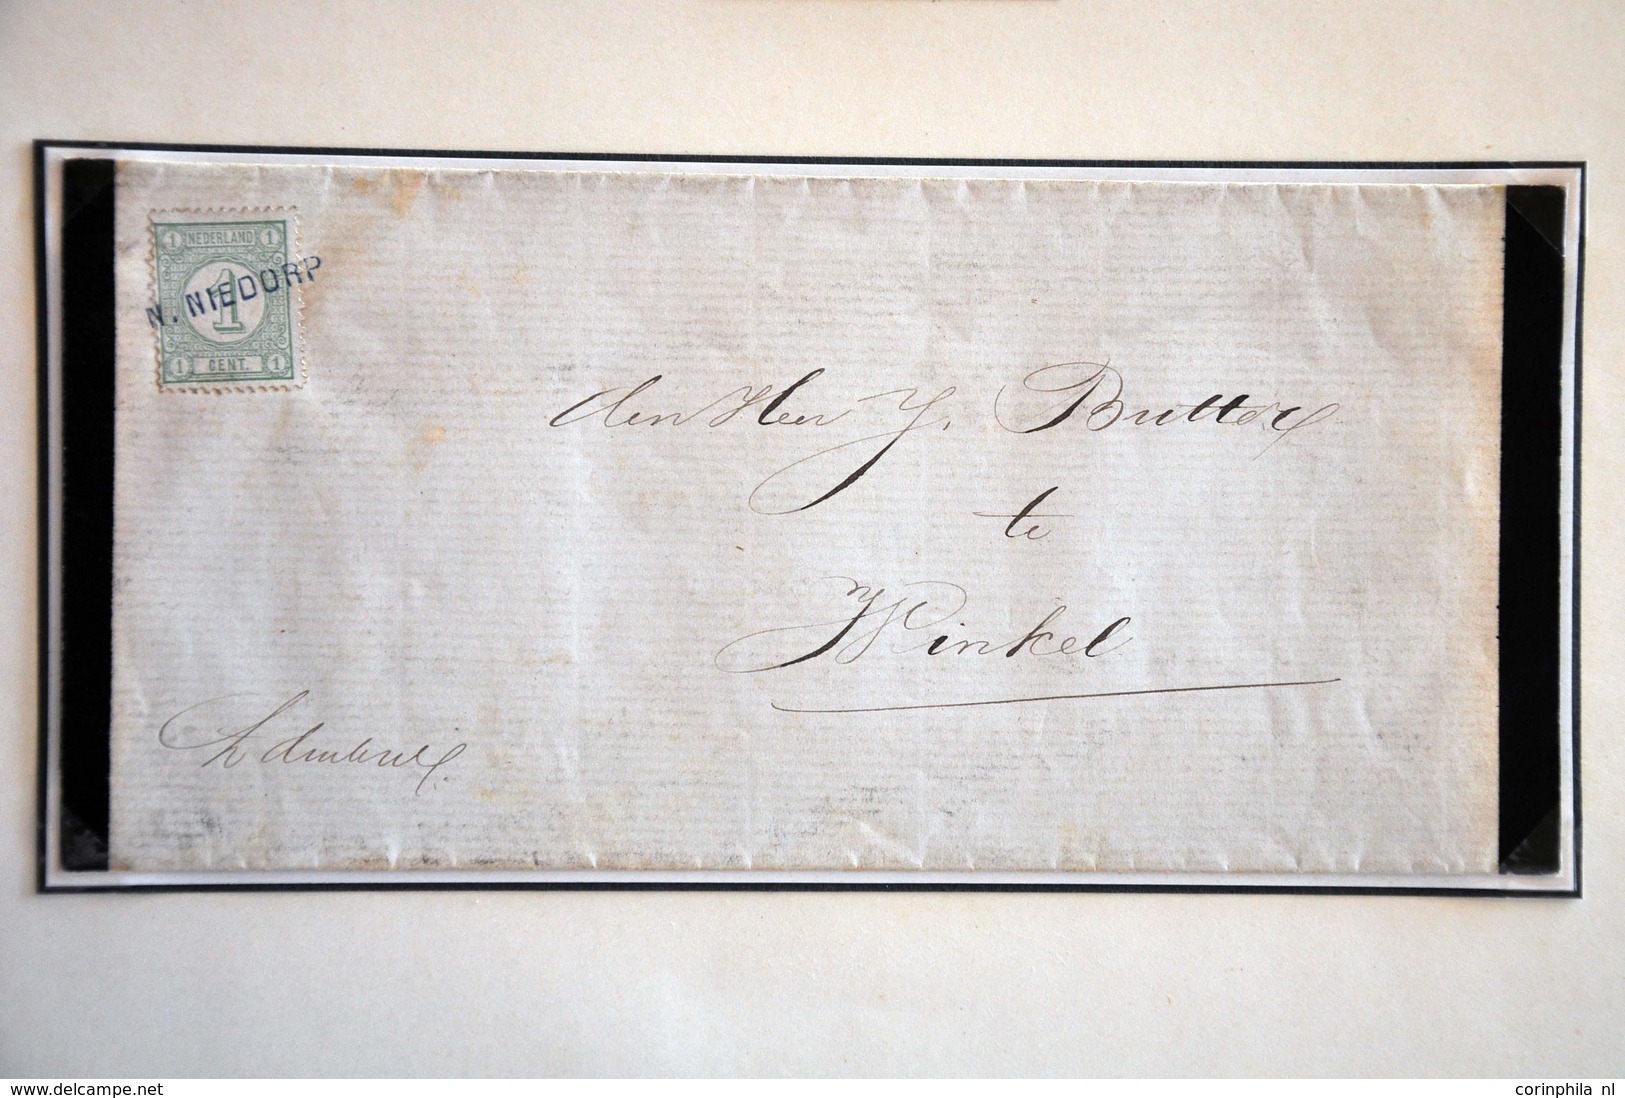 1 NEDERLAND 1
1
1 CENT. 1
N. NIEDORP
den Heer J. Butter
te
Winkel
www.delcampe.net
corinphila nl